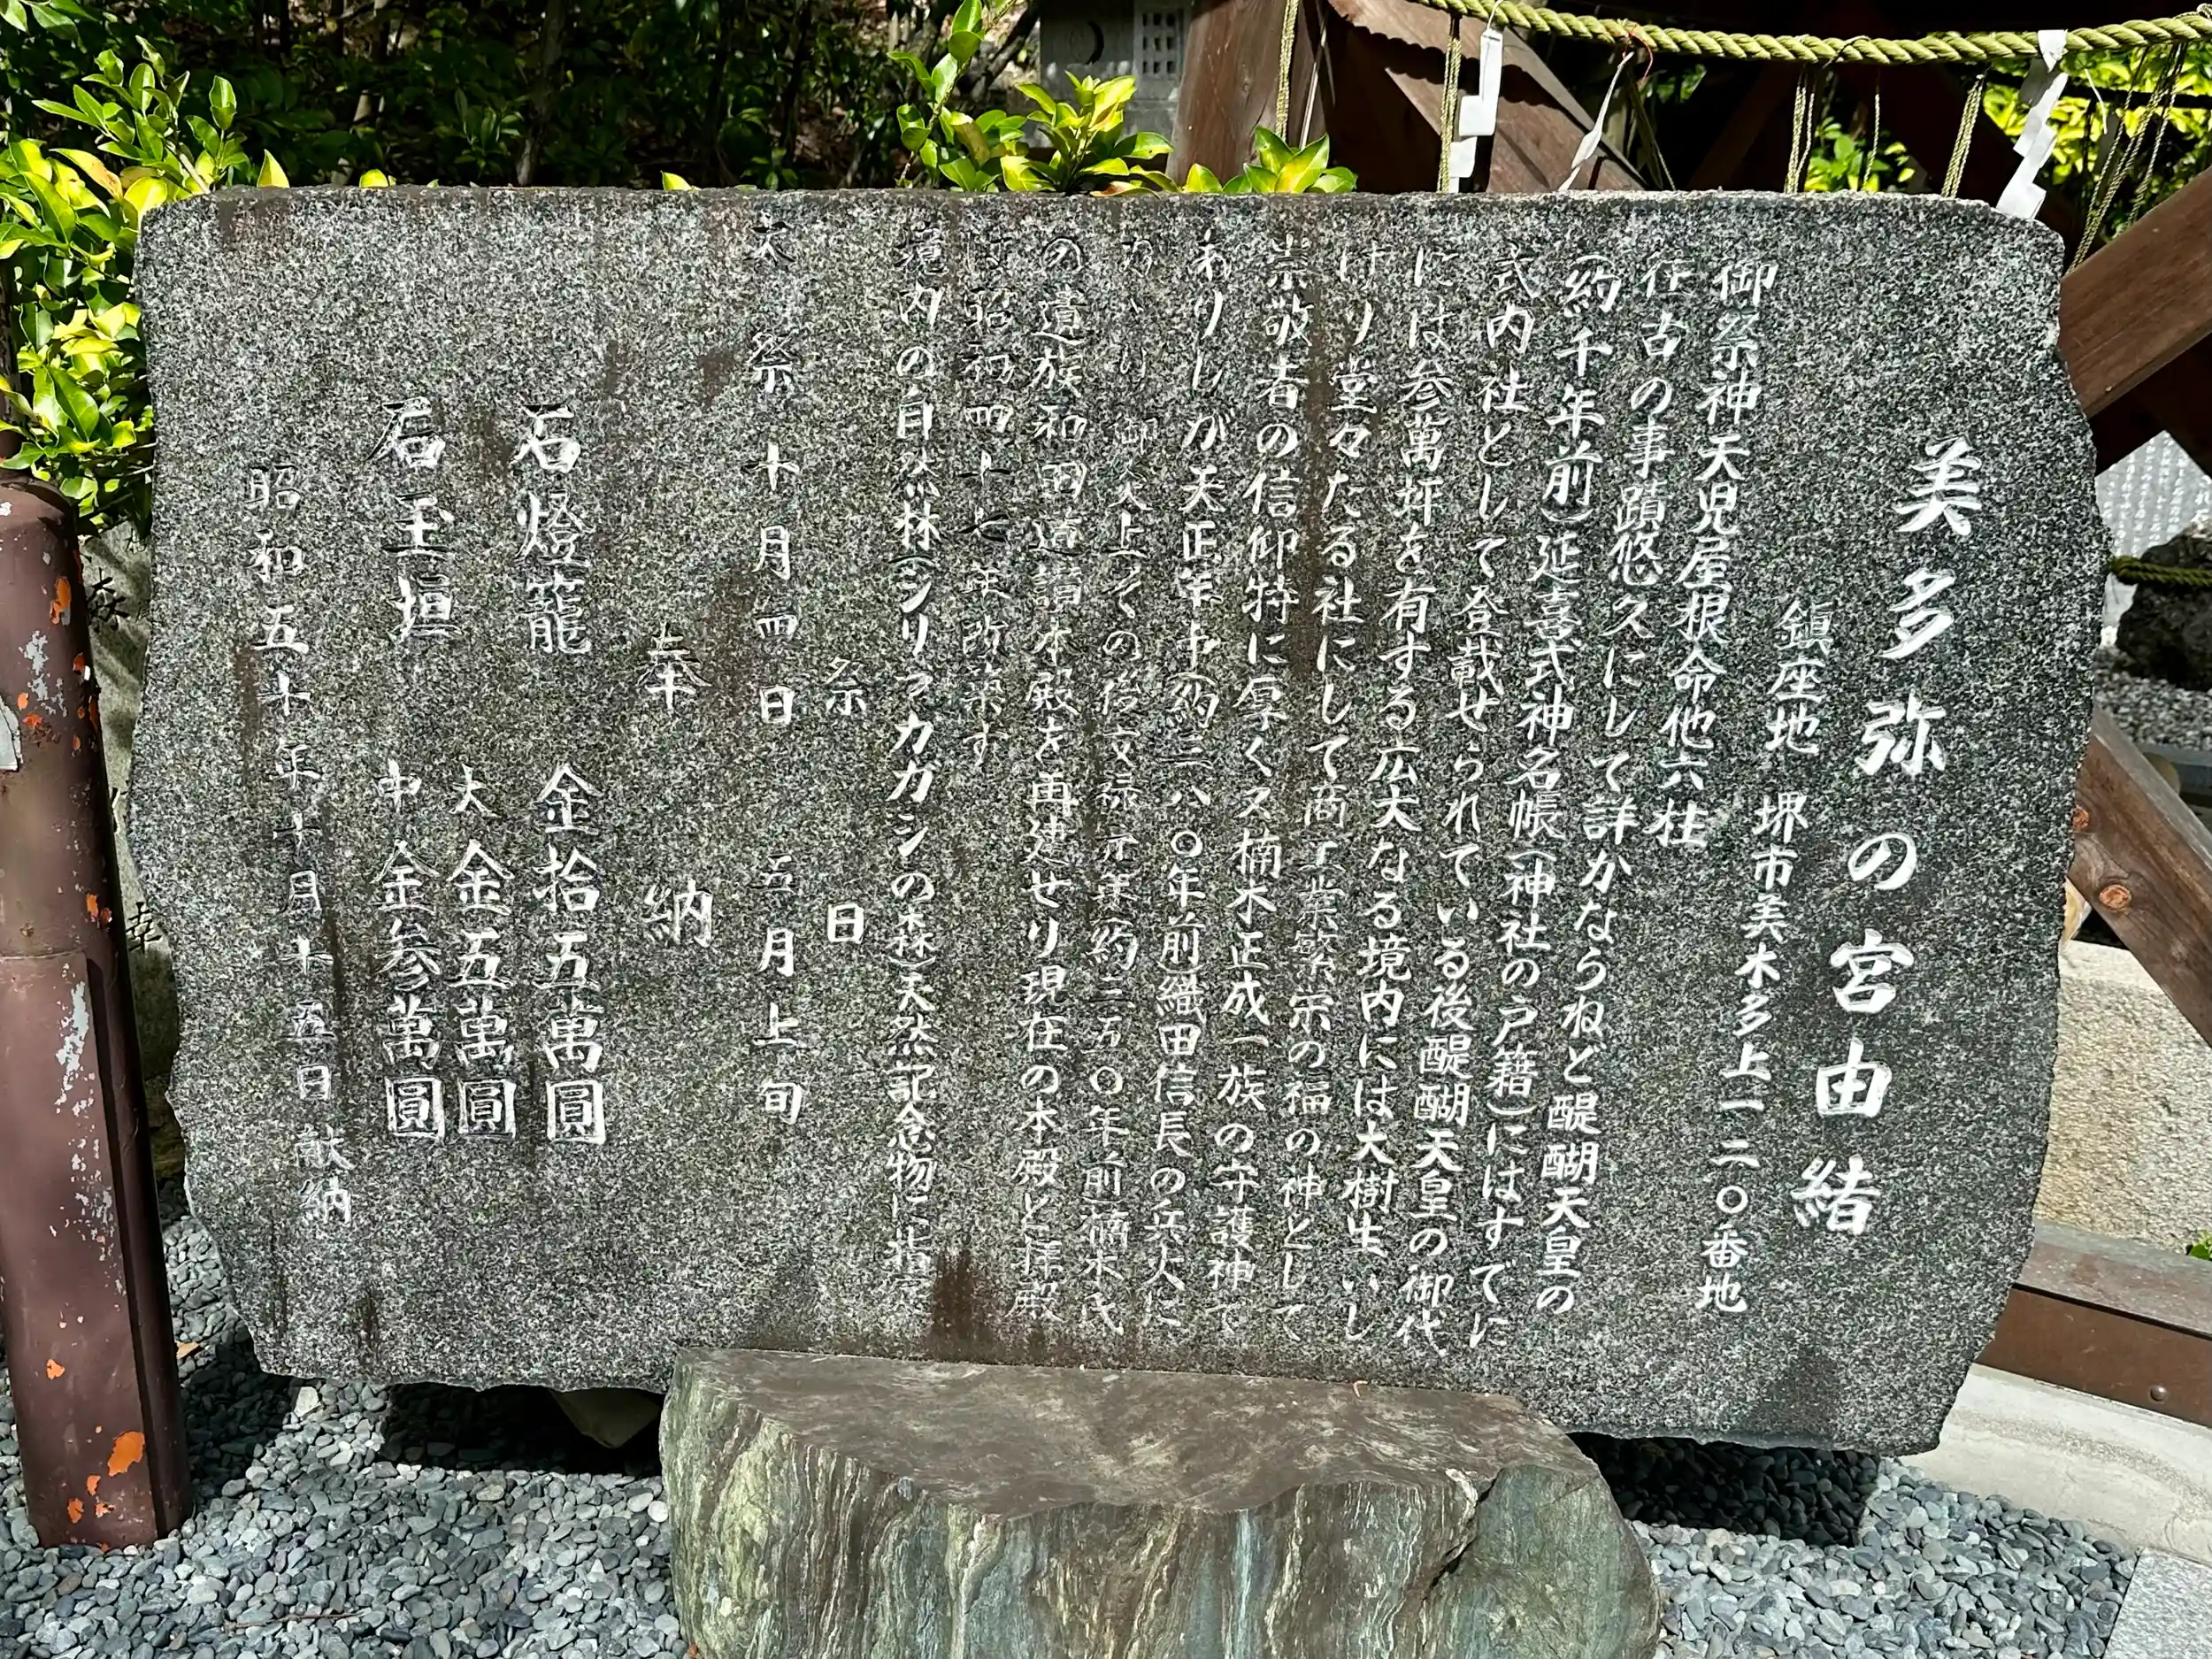 美多弥の宮由緒
鎮座地 堺市美木多上一二〇番地
御祭神天児屋根命他六柱
往古の事蹟悠久にして詳かならねど醍醐天皇の
(約千年前)延喜式神名帳(神社の戸籍)にはすでに
式内社として登載せられている後醍醐天皇の御代
には参萬坪を有する広大なる境内には大樹生いし
げり堂々たる社にして商工業繁栄の福の神として
崇敬者の信仰特に厚くス楠木正成一族の守護神で
ありしが天正年中(約三八〇年前)織田信長の兵火に
上その後文禄元年(約三五〇年前)楠木氏
の遺族和田道讃本殿を再建せり現在の本殿と拝殿
は昭和四十七年改築す
境内の自然林(シリブカガシの森)天然記念物に指定
祭日
大祭 十月四日 五月上旬
奉納
石燈籠 金拾五萬圓
石玉垣 大金五萬圓
中金参萬圓
昭和五十年十月十五日献納